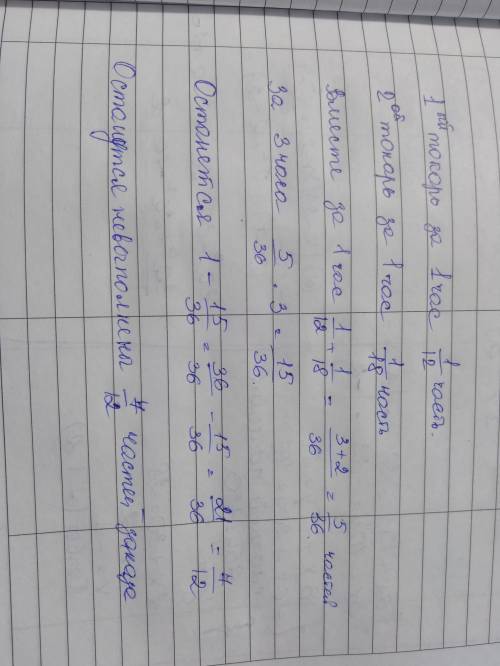 1ый токарь за 1 час 1/12 часть.
2ой токарь за 1 час 1/18 часть
Вместе за 1 час 1/12 + 1/18 = 3+2/36 = 5/36 частей
За 3 часа 5/36 · 3 = 15/36.
Останется 1 - 15/36 = 36/36 - 15/36 = 21/36 = 4/12
Останутся невыполнены 4/12 частей заказа